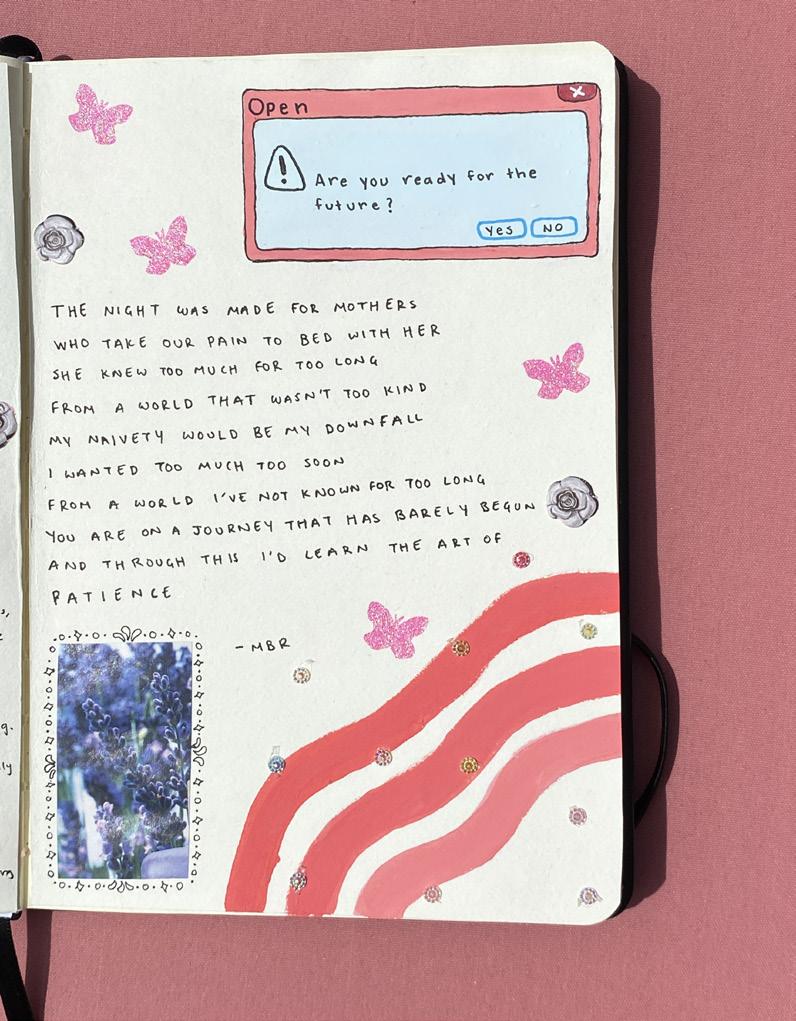 Open
X
! Are you ready for the
future?
Yes NO
THE NIGHT WAS MADE FOR MOTHERS
WHO TAKE OUR PAIN TO BED WITH HER
SHE KNEW TOO MUCH FOR TOO LONG
FROM A WORLD THAT WASN'T TOO KIND
MY NAIVETY WOULD BE MY DOWNFALL
I WANTED TOO MUCH TOO SOON
FROM A WORLD I'VE NOT KNOWN FOR TOO LONG
YOU ARE ON A JOURNEY THAT HAS BARELY BEGUN
AND THROUGH THIS I'D LEARN THE ART OF
PATIENCE
- MBR